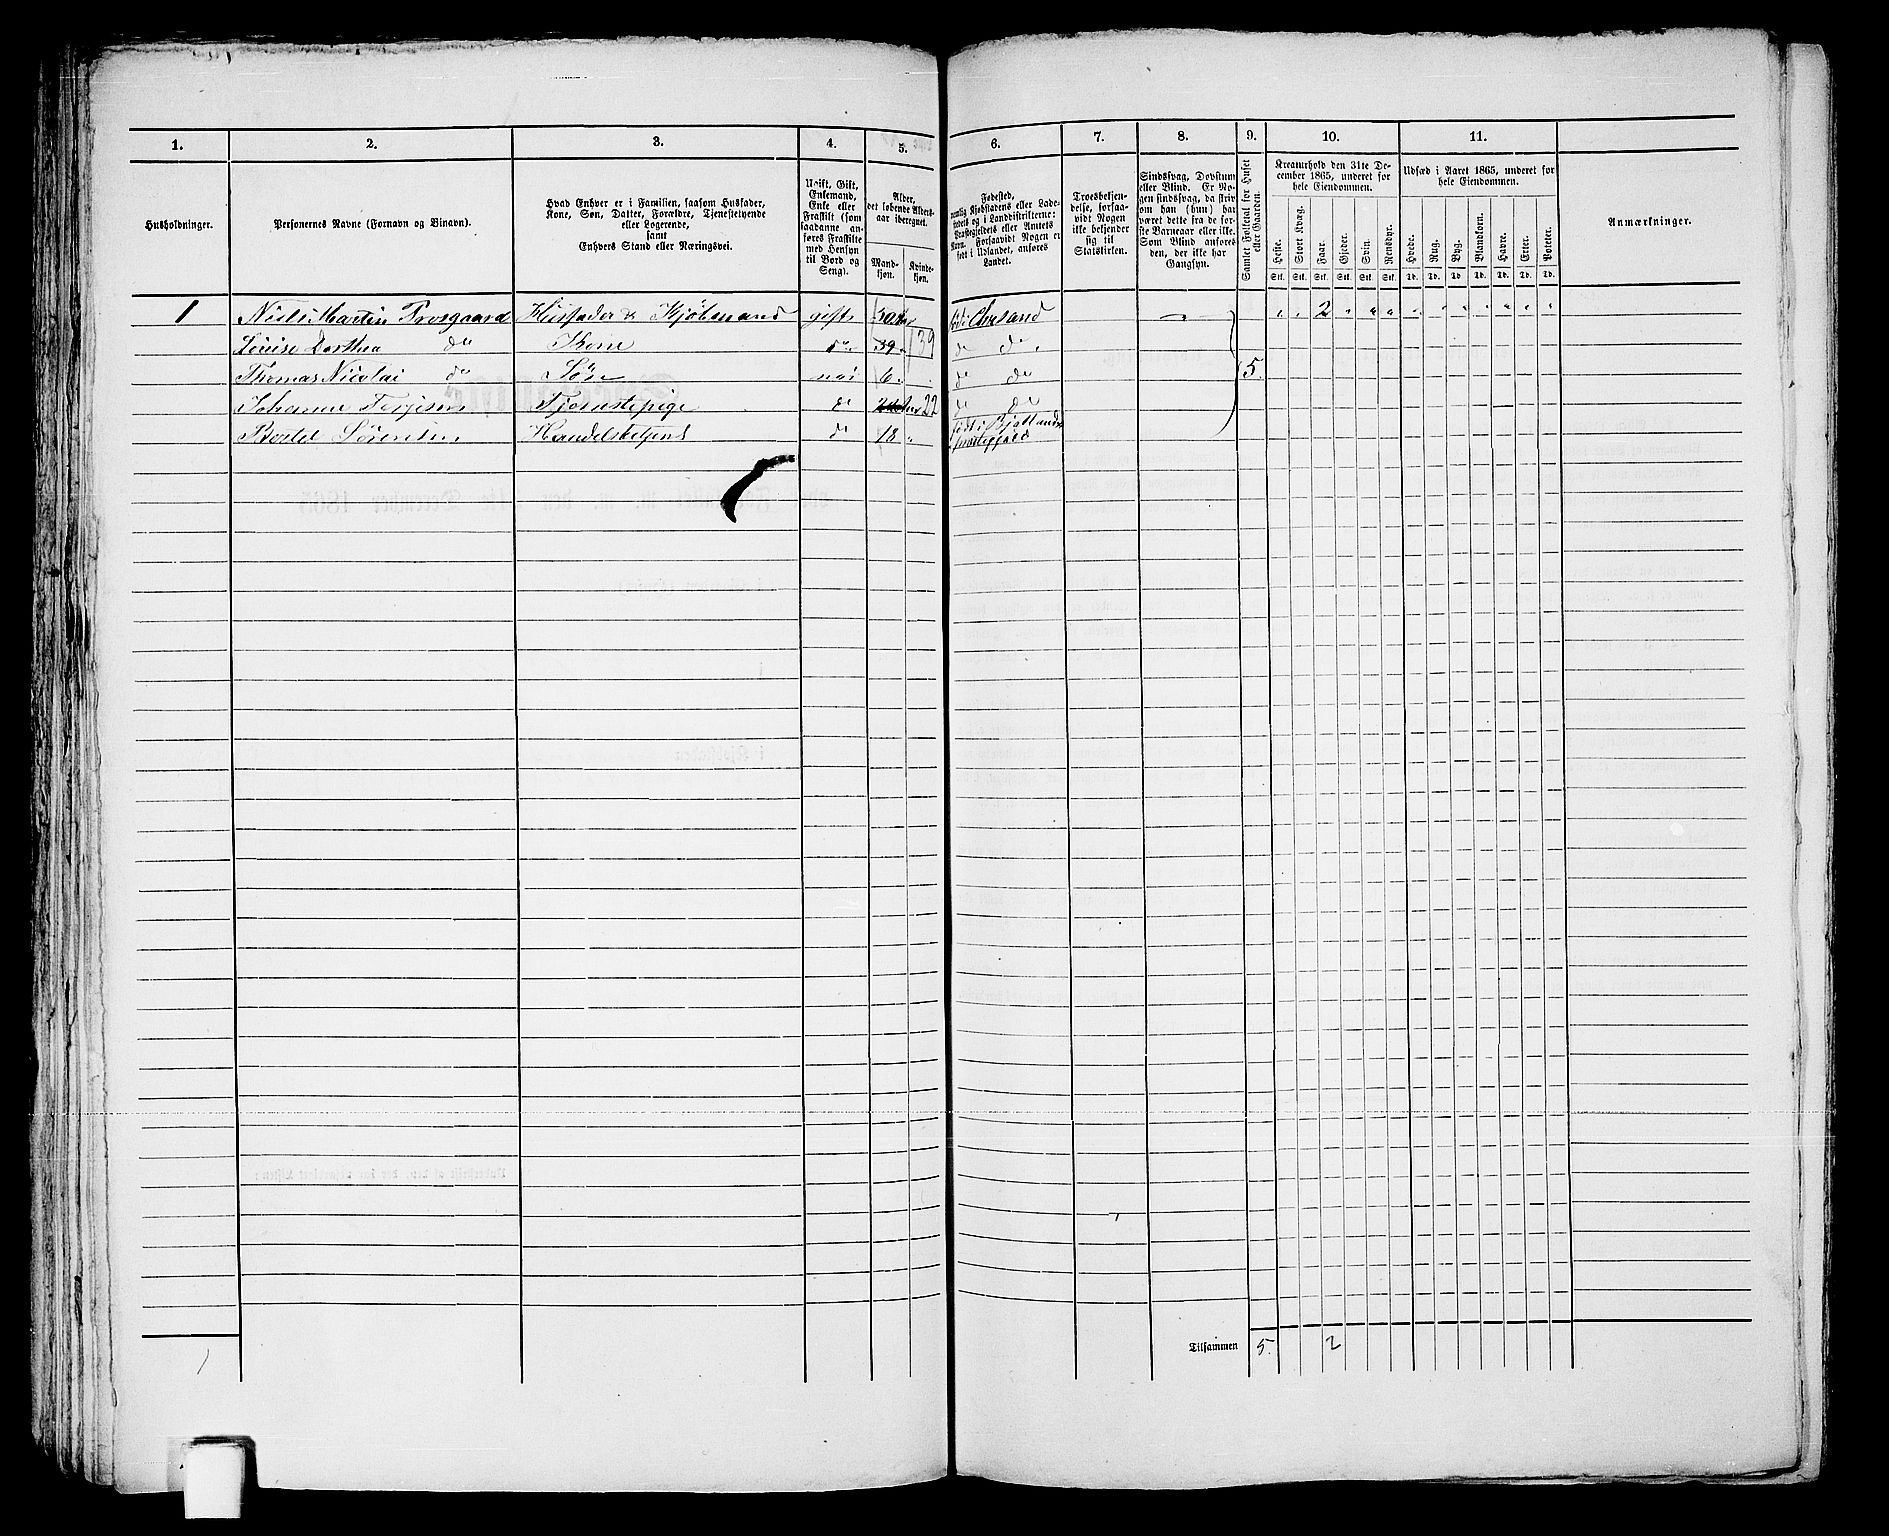 1.
2.
3.
4.
5.
6.
7.
8.
9.
10.
11.
Husholdninger.
Personernes Navne (Fornavn og Binavn).
Hvad Enhver er i Familien, saasom Husfader,
Kone, Søn, Datter, Forældre, Tjenestetyende
eller Logerende,
samt
Enhvers Stand eller Næringsvei.
Ugift, Gift,
Enkemand,
Enke eller
Fraskilt (som
saadanne an-
føres Fraskilte
med Hensyn
til Bord og
Seng).
Alder,
det løbende Alders-
aar iberegnet.
Mand-
kjøn.
Kvinde-
kjøn.
Fødested,
nemlig Kjøbstadens eller Lade-
stedets og i Landdistrikterne:
Præstegjeldets eller Amtets
Navn. Forsaavidt Nogen er
født i Udlandet, anføres
Landet.
Troesbekjen-
delse, forsaa-
vidt Nogen
ikke bekjender
sig til
Statskirken.
Sindssvag, Døvstum
eller Blind. Er No-
gen sindssvag, da skriv
om han (hun) har
været dette fra de før-
ste Barneaar eller ikke.
Som Blind anføres
den, der ikke har
Gangsyn.
Samlet Folketal for Huset
eller Gaarden.
Kreaturhold den 31te De-
cember 1865, underet for
hele Eiendommen.
Heste.
Stort Kvæg.
Faar.
Gjeder.
Svin.
Rensdyr.
Stk. Stk. Stk. Stk. Stk. Stk.
Udsæd i Aaret 1865, underet for
hele Eiendommen.
Hvede.
Rug.
Byg.
Blandkorn.
Havre.
Erter.
Poteter.
Td. Td. Td. Td. Td. Td. Td.
Anmærkninger.
1 Niels Martin Husfader & Kjøbmand gift født i Chrsand " " 2 " " " " " " " " " "
Louise Dorthea do Kone do 39 39 do do
Thomas Nicolai do Søn ugi 6 " do do 5.
Johanne Tjenestepige do 22 do do
Bertel Sørensen Handelsbetjent do 18 " født i Bjellands
præstegjeld
Tilsammen 5. 2